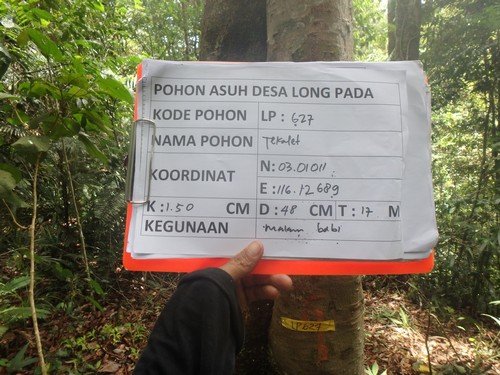 POHON ASUH DESA LONG PADA
KODE POHON LP : 627
NAMA POHON Tekalet
KOORDINAT N : 03.01011
E : 116.12689
K : 1.50 CM D : 48 CM T : 17 M
KEGUNAAN makan babi
LP627